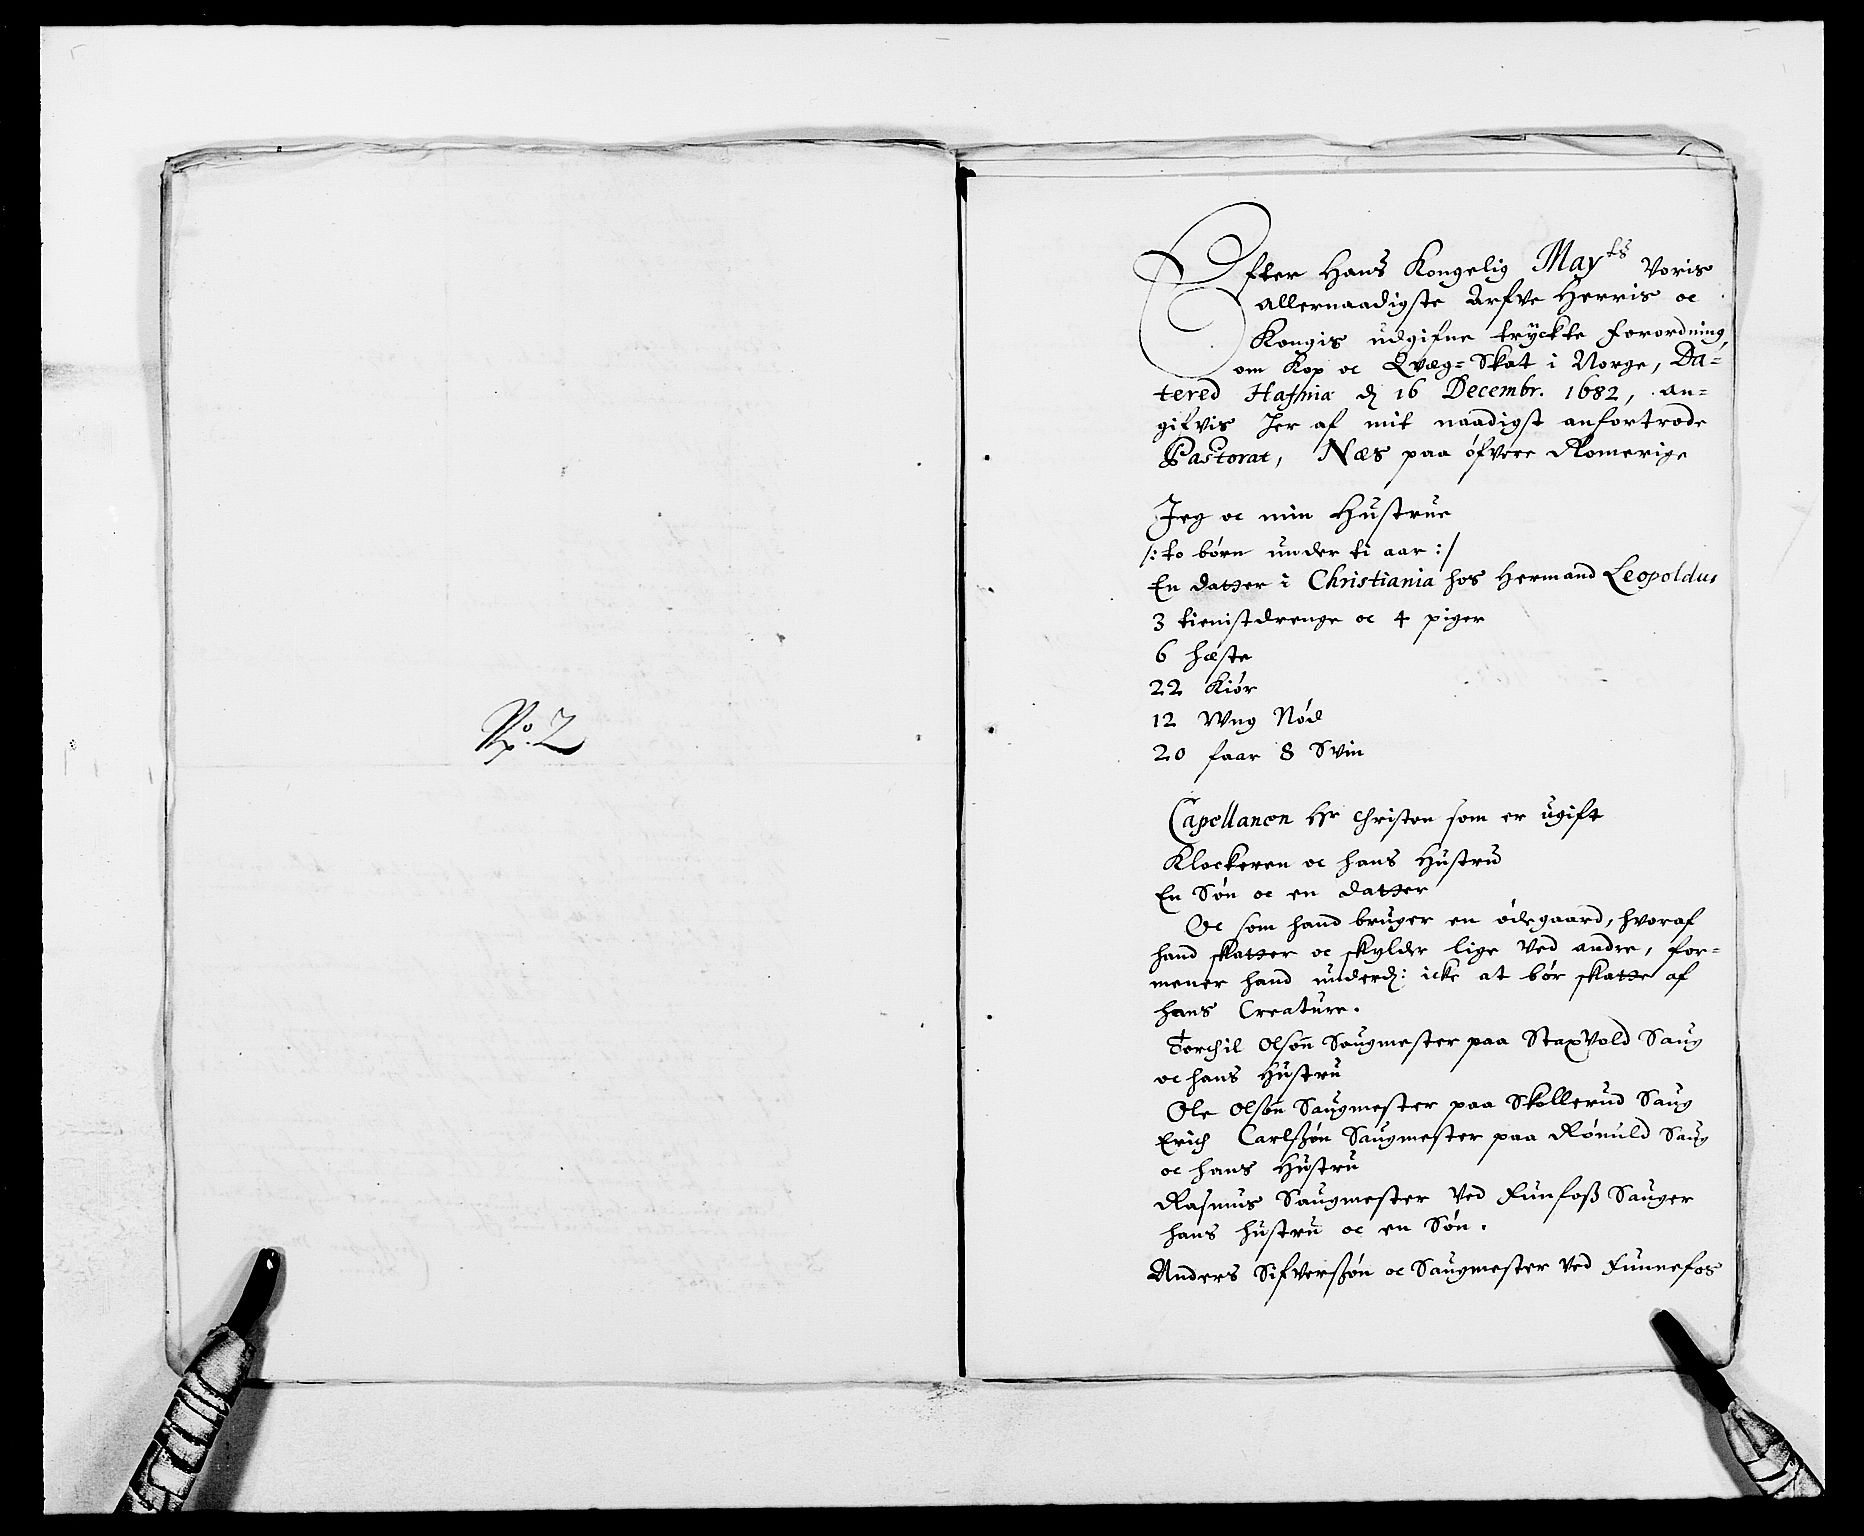 No. 2
Efter Hans Kongelig May.ts Voris
allernaadigste Arfve Herris oc
Kongis udgifne tryckte Forordning,
om Kop oc Qvæg-Skat i Norge, Da-
tered Hafniæ d. 16 Decembr. 1682, an-
gifvis Jer af mit naadigst anfortrode
Pastorat, Næs paa öfvere Romerige
Jeg oc min Hustrue
/: to börn under ti aar :/
En datter i Christiania hos Hermand Leopoldus
3 tienistdrenge oc 4 piger
6 hæste
22 Kiör
12 Wng Nöd
20 faar 8 Svin
Capellanen Hr Christen som er ugift
Klockeren oc hans Hustru
En Sön oc en datter
Oc som hand bruger en ödegaard, hvoraf
hand skatter oc skylder lige ved andre, for-
mener hand underd: icke at bör skatte af
hans Creature.
Torchil Olsön Saugmester paa Staxvold Saug
oc hans Hustru
Ole Olsön Saugmester paa Skollerud Saug
Erich Carlszön Saugmester paa Rönuld Saug
oc hans Hustru
Rasmus Saugmester ved Funfosz Sauger
hans hustru oc en Sön.
Anders Sifverszön oc Saugmester ved Funnefos